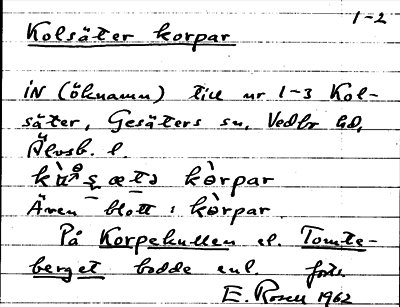 1-2
Kolsäter korpar
iN (öknamn) till nr 1-3 Kol-
säter, Gesäters sn, Vedbo hd,
Älvsb. l.
kòrpar
Även blott : kòrpar
På Korpekullen el. Tomte-
berget bodde enl. forts.
E. Rosell 1962